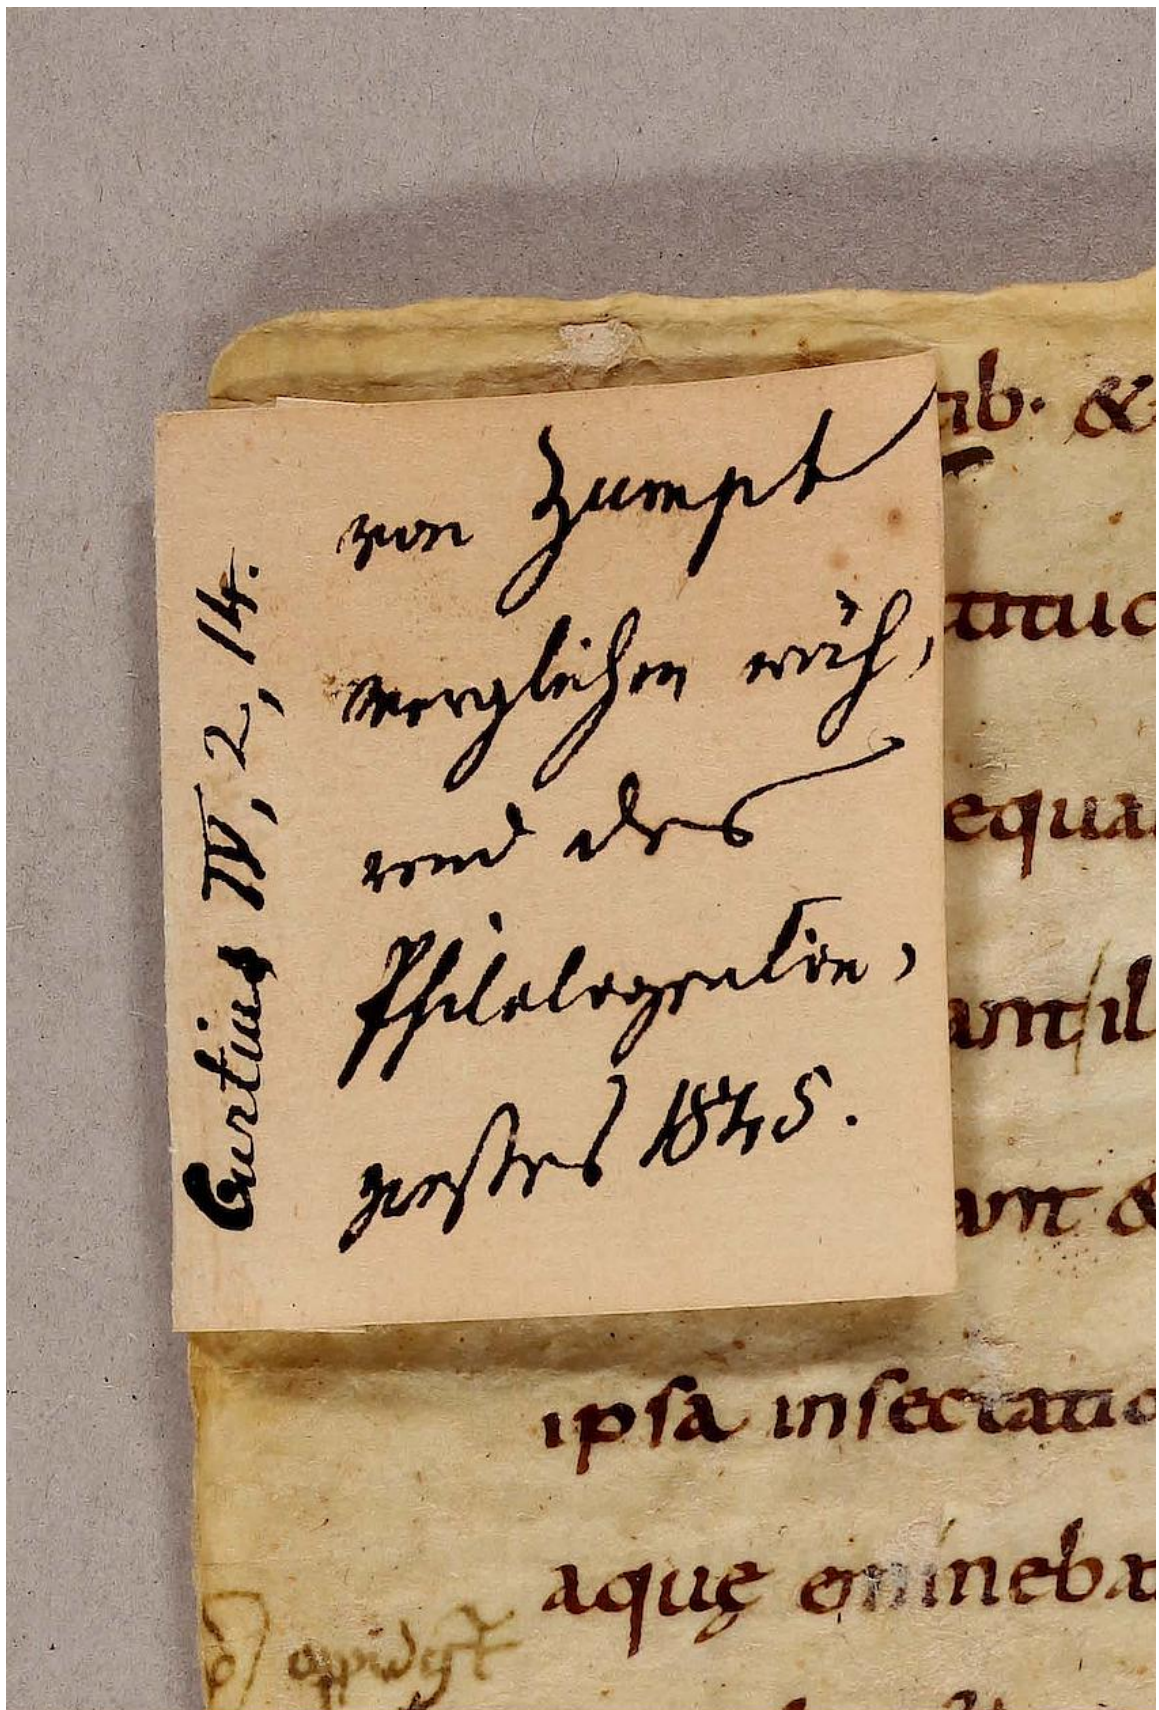 Curtius IV, 2, 14.
von Zumpt
verglichen wäh,
rend des
Philologencon,
gresses 1845.
ib. &
titu
equa
ant il
ant &
ipsa insectatio
aquę emineba